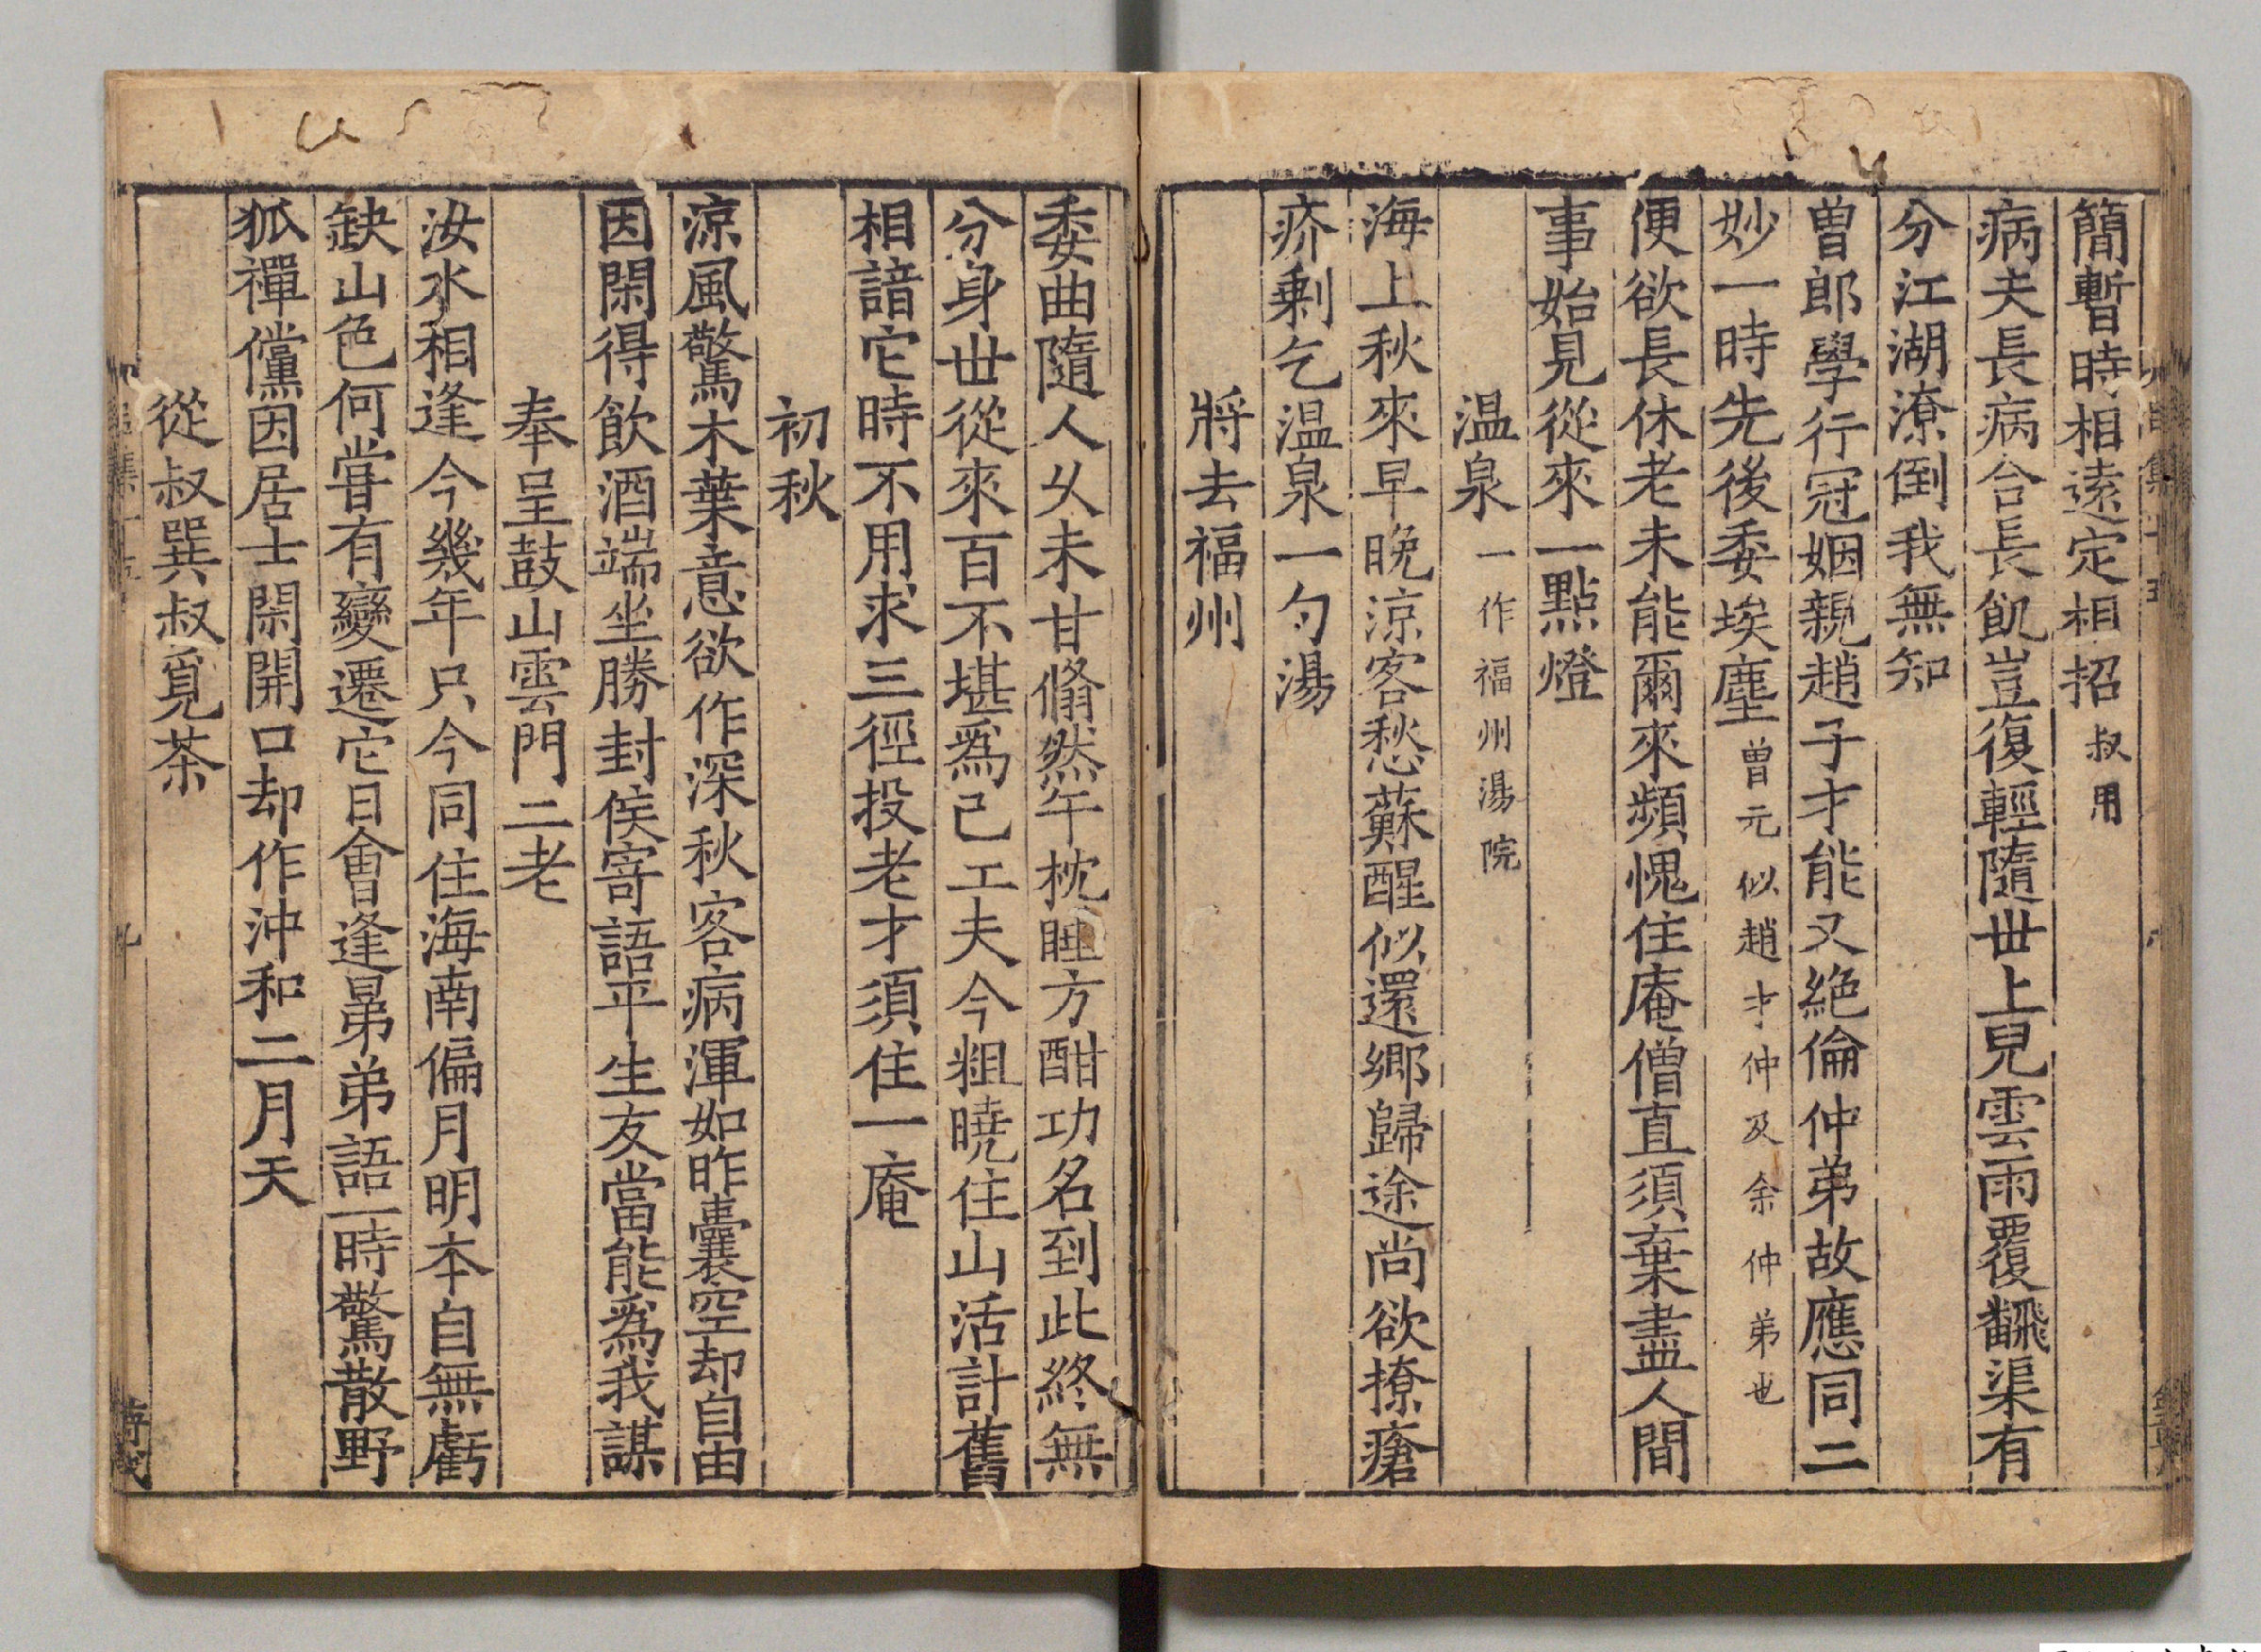 簡暫時相遠定相招叔用
病夫長病合長飢豈復輕隨世上兒雲雨覆飜渠有
分江湖潦倒我無知
曾郎學行冠姻親趙子才能又絕倫仲弟故應同二
妙一時先後委埃塵曾元似趙才仲及余仲弟也
便欲長休老未能爾來頻愧住庵僧直須棄盡人間
事始見從來一點燈
温泉一作福州湯院
海上秋來早晚涼客愁蘇醒似還鄉歸途尚欲撩瘡
疥剩乞温泉一勺湯
將去福州
委曲隨人久未甘翛然午枕睡方酣功名到此終無
分身世從來百不堪爲己工夫今粗曉住山活計舊
相諳它時不用求三徑投老才須住一庵
初秋
涼風驚木葉意欲作深秋客病渾如昨囊空却自由
因閑得飲酒端坐勝封侯寄語平生友當能爲我謀
奉呈鼓山雲門二老
汝水相逢今幾年只今同住海南偏月明本自無虧
缺山色何甞有變遷它日會逢昴弟語一時驚散野
狐禪儻因居士閑開口却作沖和二月天
從叔巽叔覓茶